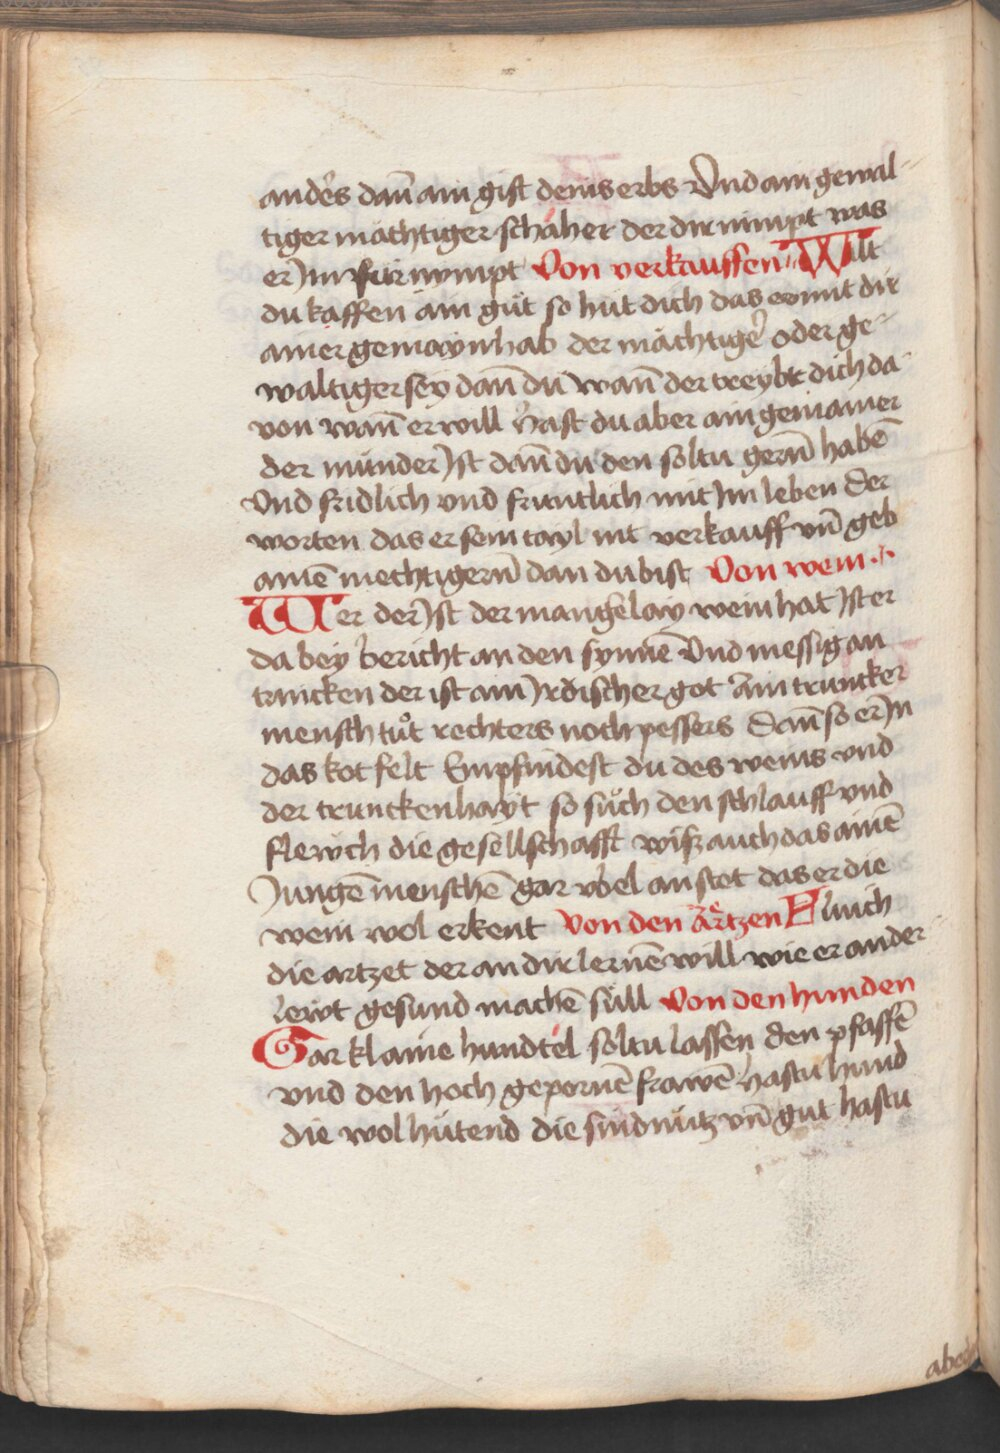 anders dan̄ ain gift deins erbs Vnd ain gewal-
tiger mächtiger schäher der dir nimpt was
er Jm für nympt Von verkauffen Wilt
du kaffen ain gůt so hüt dich das es mit dir
ainer gemayn hab der mächtiger oder ge-
waltiger sey dan̄ du wan̄ der treybt dich da
von wan̄ er will Hast du aber ain gemainer
der münder Jst dan̄ du den soltu gern̄ habē
Vnd fridlich vnd fruntlich mit Jm leben Der
worten das er sein tayl nit verkauff vn̄ geb
ainē mechtigern̄ dan du bist Von wein
Wer der Jst der mangkelay wein hat Jst er
da bey bericht an den synnē Vnd messig an
trincken der ist ain Jrdischer got Ain truncker
mensch tůt rechters noch pessers Dan̄ so er Jn
das kot felt Empfindest du des weins vnd
der trunckenhayt so sůch den schlauff vnd
flewch die gesellschafft wiß auch das ainē
Jungē menschē gar vbel anstet das er die
wein wol erkent Von den Ärtzen Fluich
die artzet der an dir lernē will wie er ander
lewt gesund machē süll Von den hunden
Gar klaine hundtel soltu lassen den pfaffē
vnd den hoch gepornē frawē Hastu hund
die wol hütend die sind nütz vn̄ gut hastu